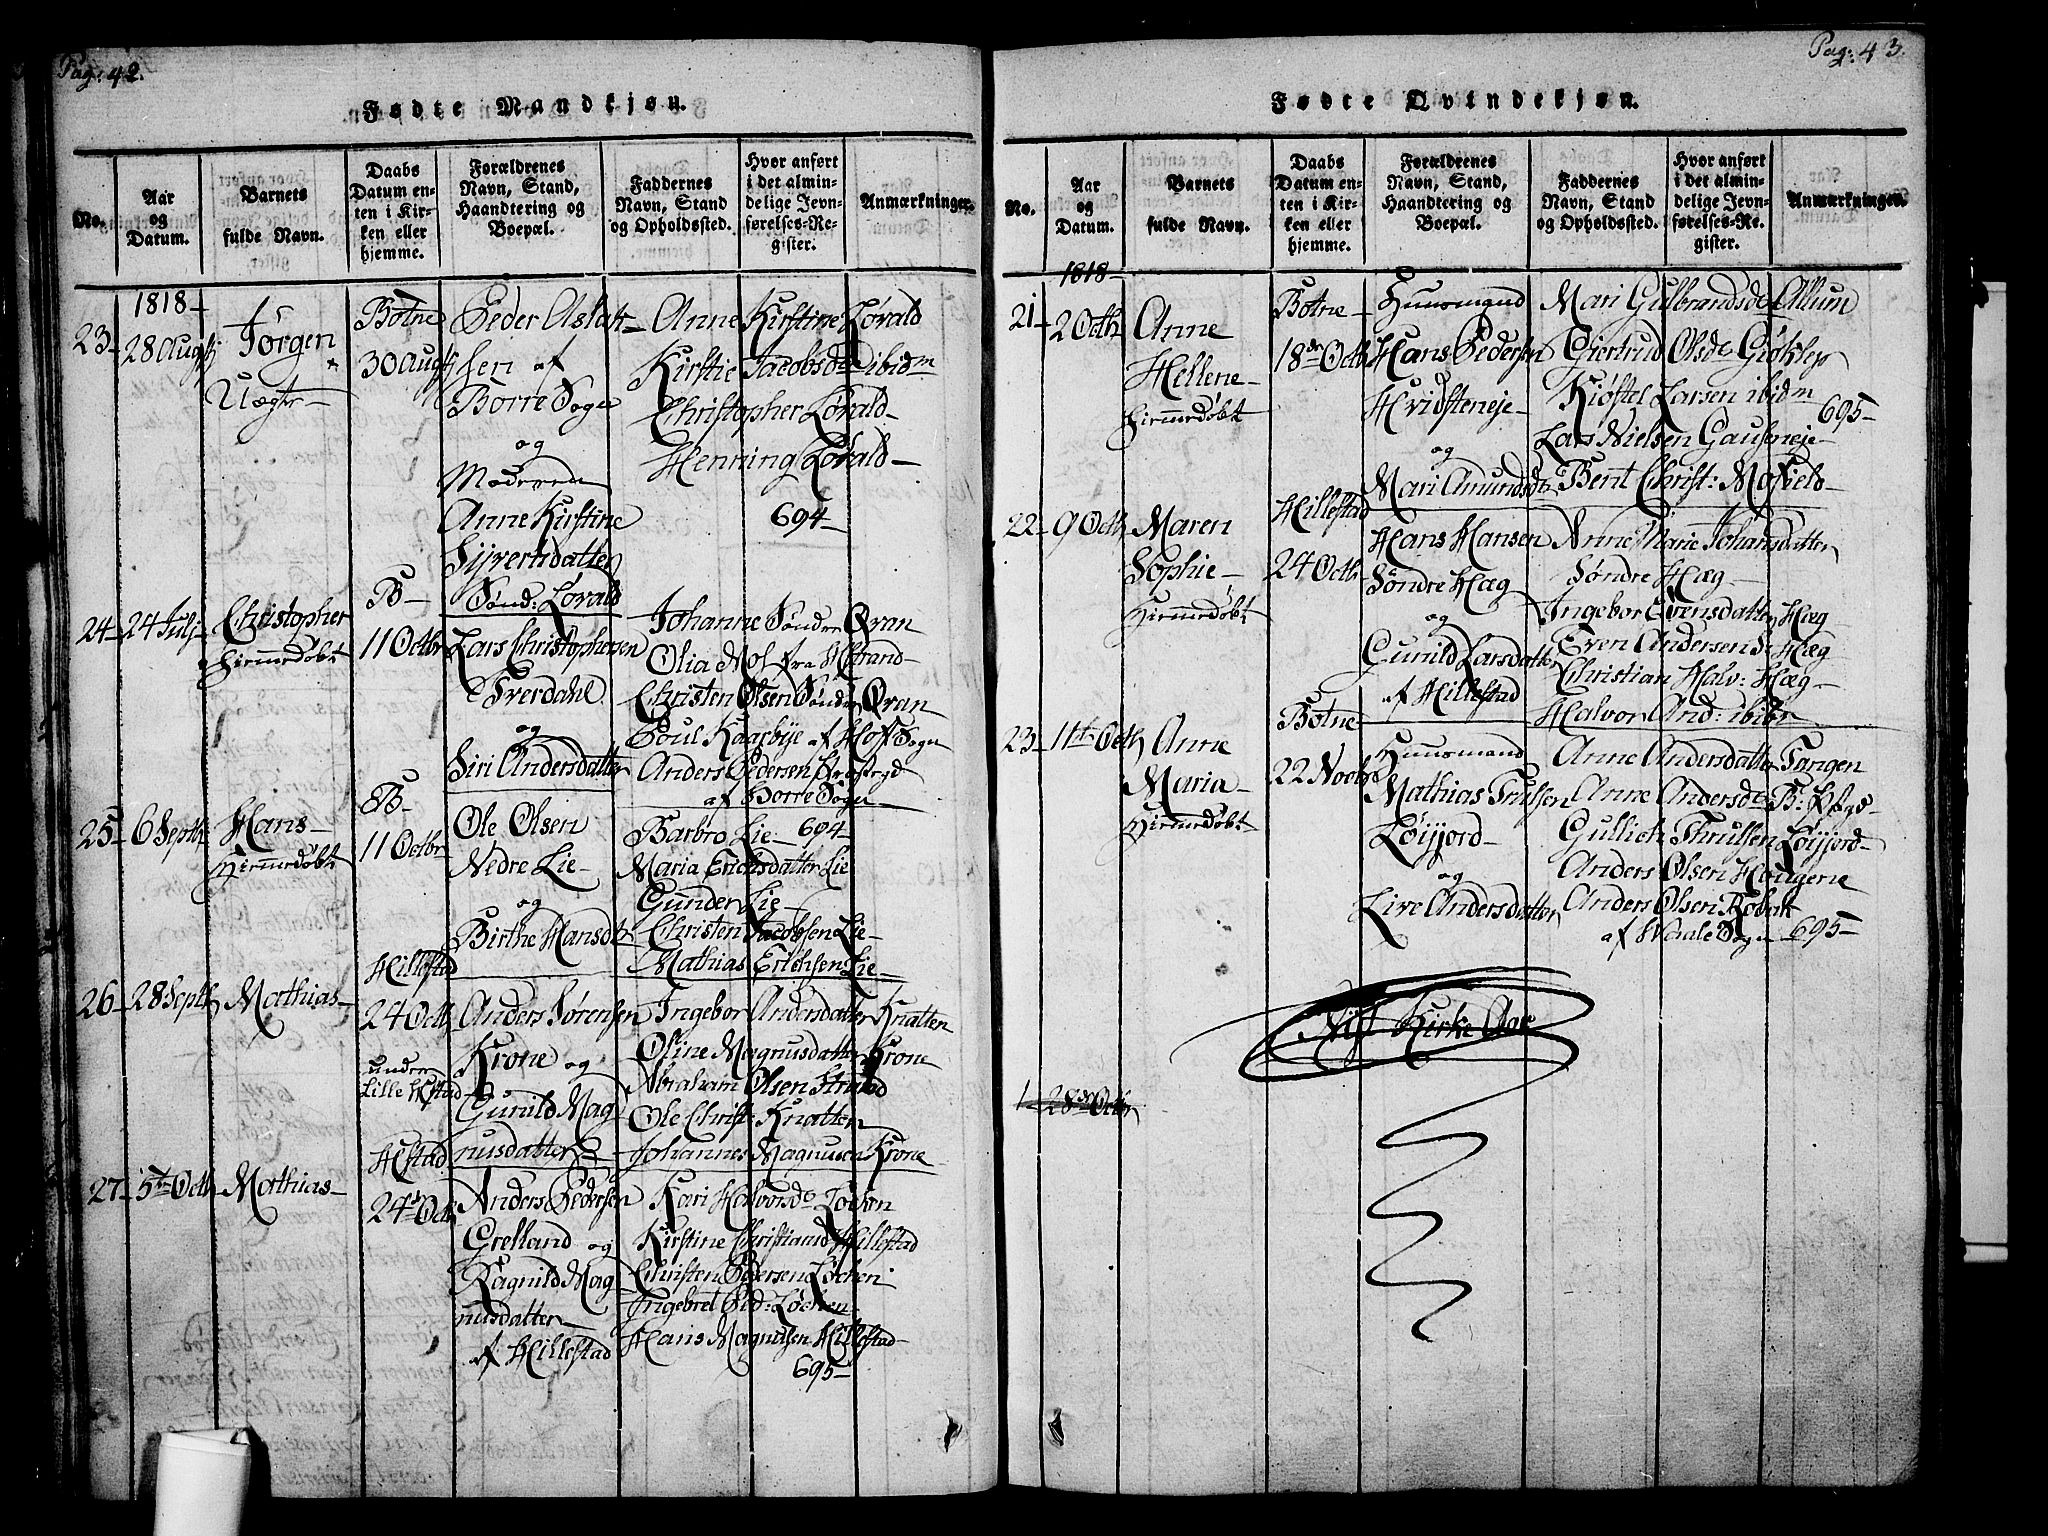 Pag: 42.
Fødte Mandkjøn.
No.
Aar og Datum.
Barnets fulde Navn.
Daabs Datum enten i Kirken eller hjemme.
Forældrenes Navn, Stand, Haandtering og Boepæl.
Faddernes Navn, Stand og Opholdssted.
Hvor anført i det almindelige Jevnførelses-Register.
Anmærkninger.
1818
23
28 Augt
Jørgen
Uægte
Botne
30 Augt
Peder Aslak-
sen af
Borre Sogn
og
Moderen
Anne Kirstine
Sijvertsdatter
Sønd: Løvald
Anne Kirstine Løvald
Kirstie Jacobsd ibidm
Christopher Løvald
Henning Løvald
694
24
24 Julj
Christopher
Hiemmedøbt
B
11 Octbr
Lars Christophersen
og
Siri Andersdatter
Johanne Søndre Qvan
Olia Mos fra Strand
Christen Olsen Søndre Qvan
Poul Kaarbye af Hof Sogn
Anders Pedersen
af Borre Sogn
25
6 Septb
Hans
Hiemmedøbt
B
11 Octbr
Ole Olsen
Nedre Lie
og
Birthe Hansdt
Barbro Lie 694
Maria Erichsdatter Lie
Gunder Lie
Christen Jacobsen Lie
Mathias Erichsen Lie
26
28 Septb
Mathias
Hillestad
24 Octb
under
Anders Sørensen
Krone og
Gunild Mag
nusdatter
Ingebor Andersdatter Knatten
Oline Magnusdatter Krone
Abraham Olsen Strand
Ole Christ: Knatten
Johannes Magnusen Krone
27
5te Octb
Mathias
Hlstad
24de Octb
Anders Pedersen
Grelland og
Ragnild Mag
nusdatter
af Hillestad
Kari Halvorsd Løchen
Kirstine Christiansd Hillestad
Christen Pedersen Løchen
Ingebret Ped: Løchen
Hans Magnusen Hillestad
695
Pag: 43.
Fødte Qvindekjøn.
No.
Aar og Datum.
Barnets fulde Navn.
Daabs Datum enten i Kirken eller hjemme.
Forældrenes Navn, Stand, Haandtering og Boepæl.
Faddernes Navn, Stand og Opholdssted.
Hvor anført i det almindelige Jevnførelses-Register.
Anmærkninger.
1818
21
2 Octb
Anne
Hellene
Hiemmedøbt
Botne
18de Octb
Huusmand
Hans Pedersen
Hvidsteneje
og
Mari Amundsdt
Mari Gulbrandsd Allum
Giertrud Olsd
Kiøstel Larsen ibidm
695
Lars Nielsen Gauseneje
Bent Christ:
22
9 Octb
Maren
Sophie
Hiemmedøbt
Hillestad
24 Octb
Hans Hansen
Søndre Hæg
og
Gunild Larsdatter
af Hillestad
Anne Marie Johansdatter
Søndre Hæg
Ingebor Evensdatter Hæg
Even Andersen S: Hæg
Christian Halv: Hæg
Halvor And: ibidm
23
11te Octb
Anne
Maria
Hiemmedøbt
Botne
22 Novbr
Huusmand
Mathias Trulsen
Løijjord
og
Live Andersdatter
Anne Andersdatter Tangen
Anne Andersd
Gullich Thrulsen Løijjord
Anders Olsen Haugene
Anders Olsen
af Waale Sogn 695
Nyt Kirke Aar
1
28de Octbr